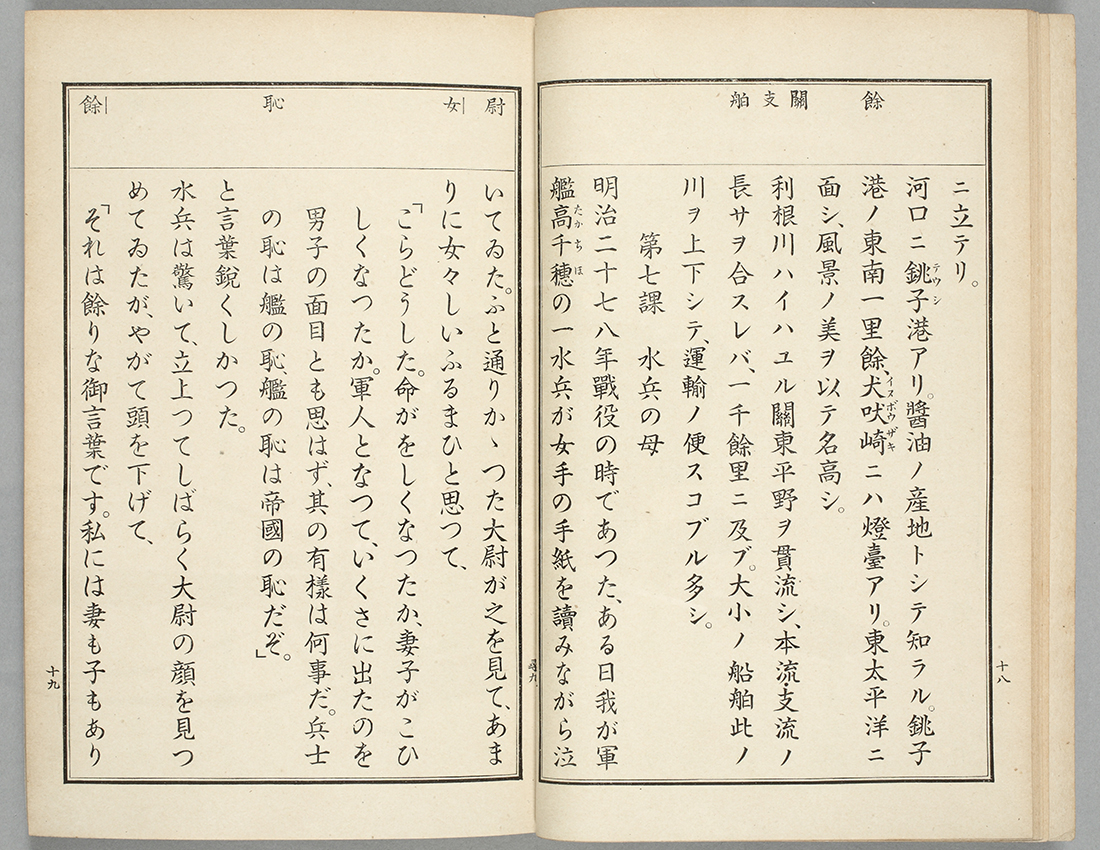 餘
關
支
舶
ニ立テリ。
河口ニ銚子港アリ。醬油ノ產地トシテ知ラル。銚子
テウシ
港ノ東南一里餘、犬吠崎ニハ燈臺アリ。東太平洋ニ
イヌボウザキ
面シ、風景ノ美ヲ以テ名高シ。
利根川ハイハユル關東平野ヲ貫流シ、本流・支流ノ
長サヲ合スレバ、一千餘里ニ及ブ。大小ノ船舶此ノ
川ヲ上下シテ、運輸ノ便スコブル多シ。
第七課 水兵の母
明治二十七八年戰役の時であつた、ある日我が軍
艦高千穗の一水兵が女手の手紙を讀みながら泣
たかちほ
十八
尋九
尉
女
恥
餘
いてゐた。ふと通りかゝつた大尉が之を見て、あま
りに女々しいふるまひと思つて、
「こらどうした。命がをしくなつたか、妻子がこひ
しくなつたか。軍人となつて、いくさに出たのを
男子の面目とも思はず、其の有樣は何事だ。兵士
の恥は艦の恥、艦の恥は帝國の恥だぞ。」
と言葉銳くしかつた。
水兵は驚いて、立上つてしばらく大尉の顏を見つ
めてゐたが、やがて頭を下げて、
「それは餘りな御言葉です。私には妻も子もあり
十九